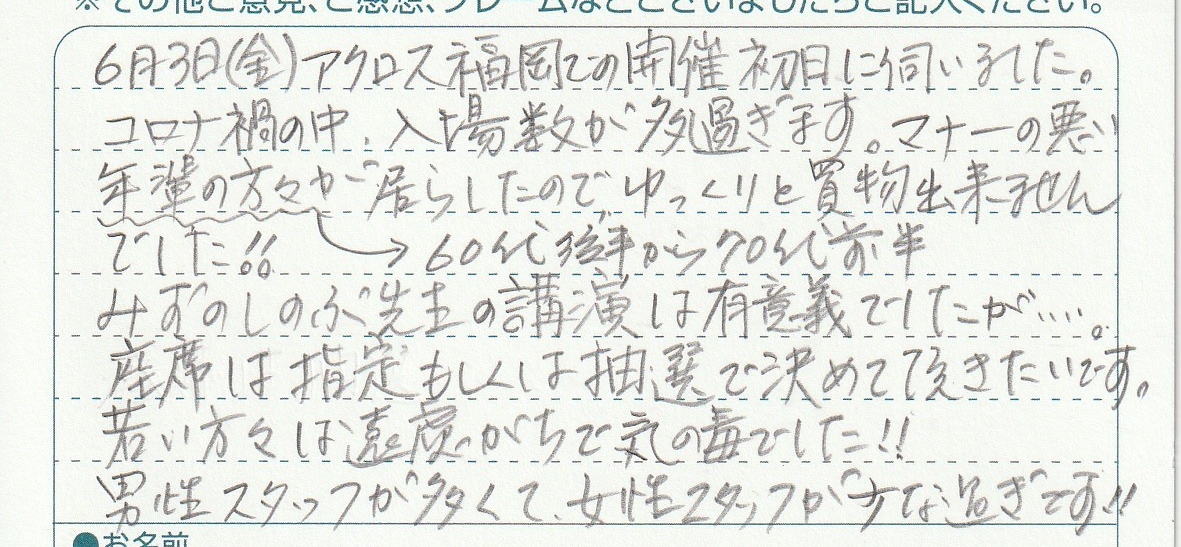 ※その他ご意見、ご感想、クレームなどございましたらご記入ください。
6月3日(金)アクロス福岡での開催初日に伺いました。
コロナ禍の中、入場数が多過ぎます。マナーの悪い
年輩の方々が居らしたのでゆっくりと買物出来ません
でした!! → 60代後半から70代前半
みずのしのぶ先生の講演は有意義でしたが…。
座席は指定もしくは抽選で決めて頂きたいです。
若い方々は遠慮がちで気の毒でした!!
男性スタッフが多くて、女性スタッフが少な過ぎです!!
●お名前